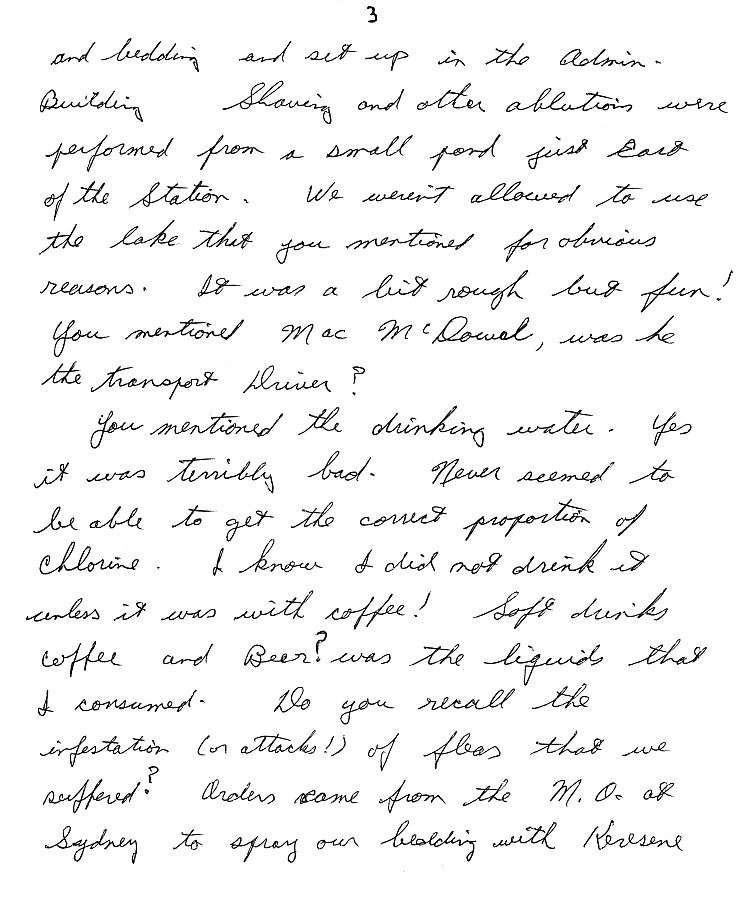 3
and bedding and set up in the Admin.
Building Shaving and other ablutions were
performed from a small pond just East
of the Station. We weren't allowed to use
the lake that you mentioned for obvious
reasons. It was a bit rough but fun!
You mentioned Mac McDowal, was he
the transport Driver?
You mentioned the drinking water. Yes
it was terribly bad. Never seemed to
be able to get the correct proportion of
Chlorine. I know I did not drink it
unless it was with coffee! Soft drinks
coffee and Beer? was the liquids that
I consumed. Do you recall the
infestation (or attacks!) of fleas that we
suffered? Orders came from the M.O. at
Sydney to spray our bedding with Keresene